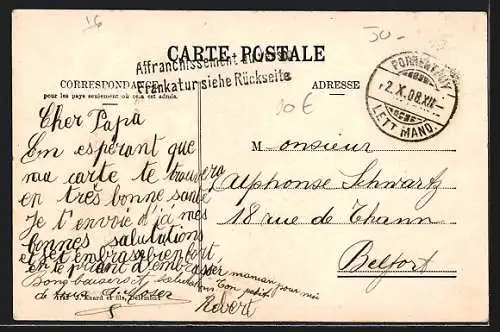 50-
CARTE POSTALE
Affranchissement au verso
Frankatur siehe Rückseite
CORRESPONDANCE
pour les pays seulement où cela est admis.
ADRESSE
10 €
PORRENTRUY
2.X.08.XII
LETT MAND.
Cher Papa
En espérant que
ma carte te trouvera
en très bonne santé
Je t'envoie d'ja mes
bonnes salutations
et et embrasse bien fort
en te priant d'embrasser maman pour moi
Bons baisers et salutations Ton petit
de
Robert
Monsieur
Alphonse Schwartz
18 rue de Thann
Belfort